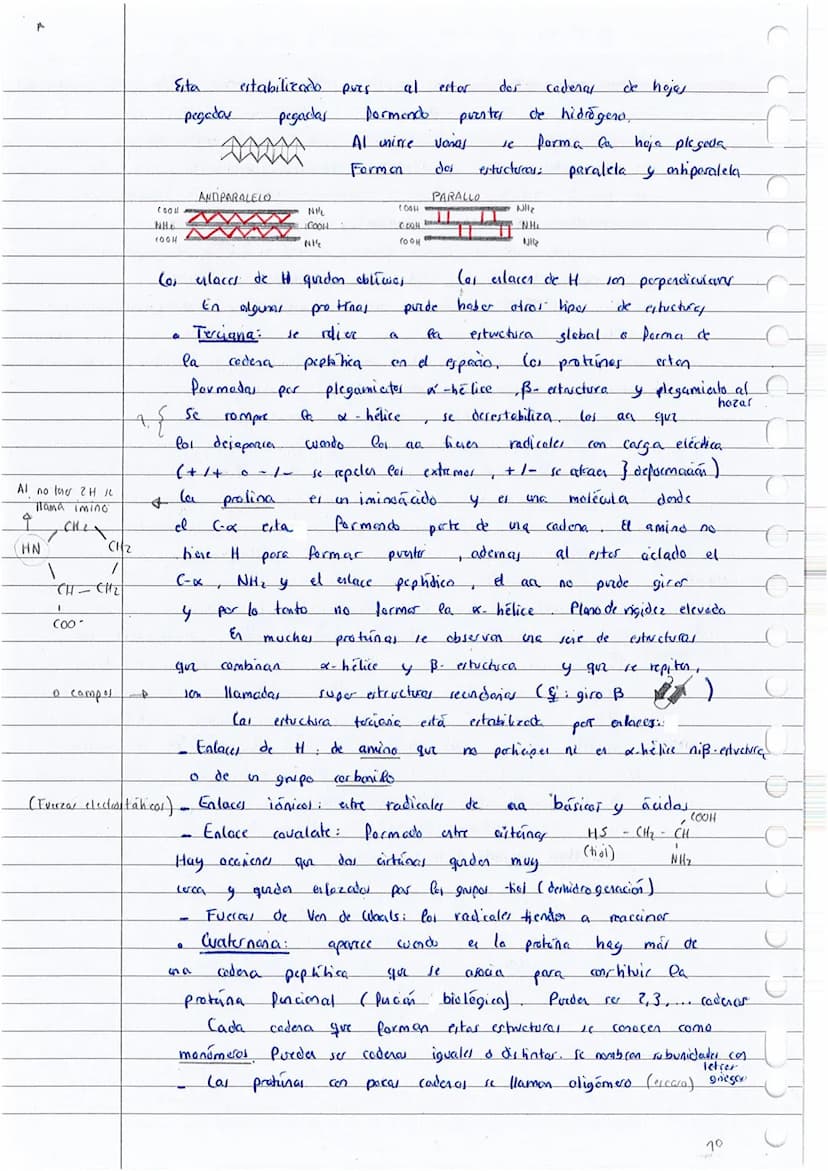 Esta estabilizado pues al estar dos cadenas de hojas
pegadas pegadas formando puentes de hidrógeno.
Al unirse varias se forma la hoja plegada
Forman dos estructuras: paralela y antiparalela
ANTIPARALELO
COOH NH2
NH2 COOH
COOH NH2
PARALLO
COOH NH2
COOH NH2
COOH NH2
Los enlaces de H quedan oblicuos
Los enlaces de H son perpendiculares
En algunas proteínas puede haber otros tipos de estructuras
• Terciaria: se refiere a la estructura global o forma de
la cadena peptítica en el espacio. Las proteínas estan
formadas por plegamientos α-hélice, β-estructura y plegamiento al
hazar
Se rompe la α-hélice, se desestabiliza. Los aa que
lo desaparia cuando los aa tienen radicales con carga eléctrica
(+/+ o -/- se repelen los extremos, +/- se atraen } deformación)
La prolina es un iminoácido y es una molécula donde
el C-α esta formando parte de una cadena. El amino no
tiene H para formar puente, ademas al estar ciclado el
C-α, NH2 y el enlace peptídico, el aa no puede girar
y por lo tanto no formar la α-hélice. Plano de rigidez elevado
Al no tener 2H se
llama imino
CH2
HN
CH2
CH - CH2
COO-
En muchas proteínas se observan una serie de estructuras
que combinan α-hélice y β-estuctuca y que se repiten,
o campos → son llamadas super estructuras secundarias (Ej: giro β )
Las estuctura terciaria está estabilizada por enlaces:
- Enlaces de H: de amino que no participen ni en α-hélice ni β-estructura
o de un grupo carbonilo
(Fuerzas electrostáticas) - Enlaces iónicos: entre radicales de aa básicos y ácidos
- Enlace covalate: Formado entre cisteínas
HS - CH2 - CH
COOH
NH2
(tiol)
Hay ocasiones que dos cisteínas quedan muy
cerca y quedan enlazadas por los grupos -tiol (deshidrogenación)
- Fuerzas de Van de Waals: los radicales tienden a reaccionar
• Cuaternaria: aparece cuando en la proteína hay más de
una cadena peptítica que se asocia para constituir la
proteína funcional (función biológica). Pueden ser 2,3,... cadenas
Cada cadena que forman estas estructuras se conocen como
monómeros. Pueden ser cadenas iguales o distintas. Se nombran subunidades con
letras
griegas
- Las proteínas con pocas cadenas se llaman oligómero (escaso)
10